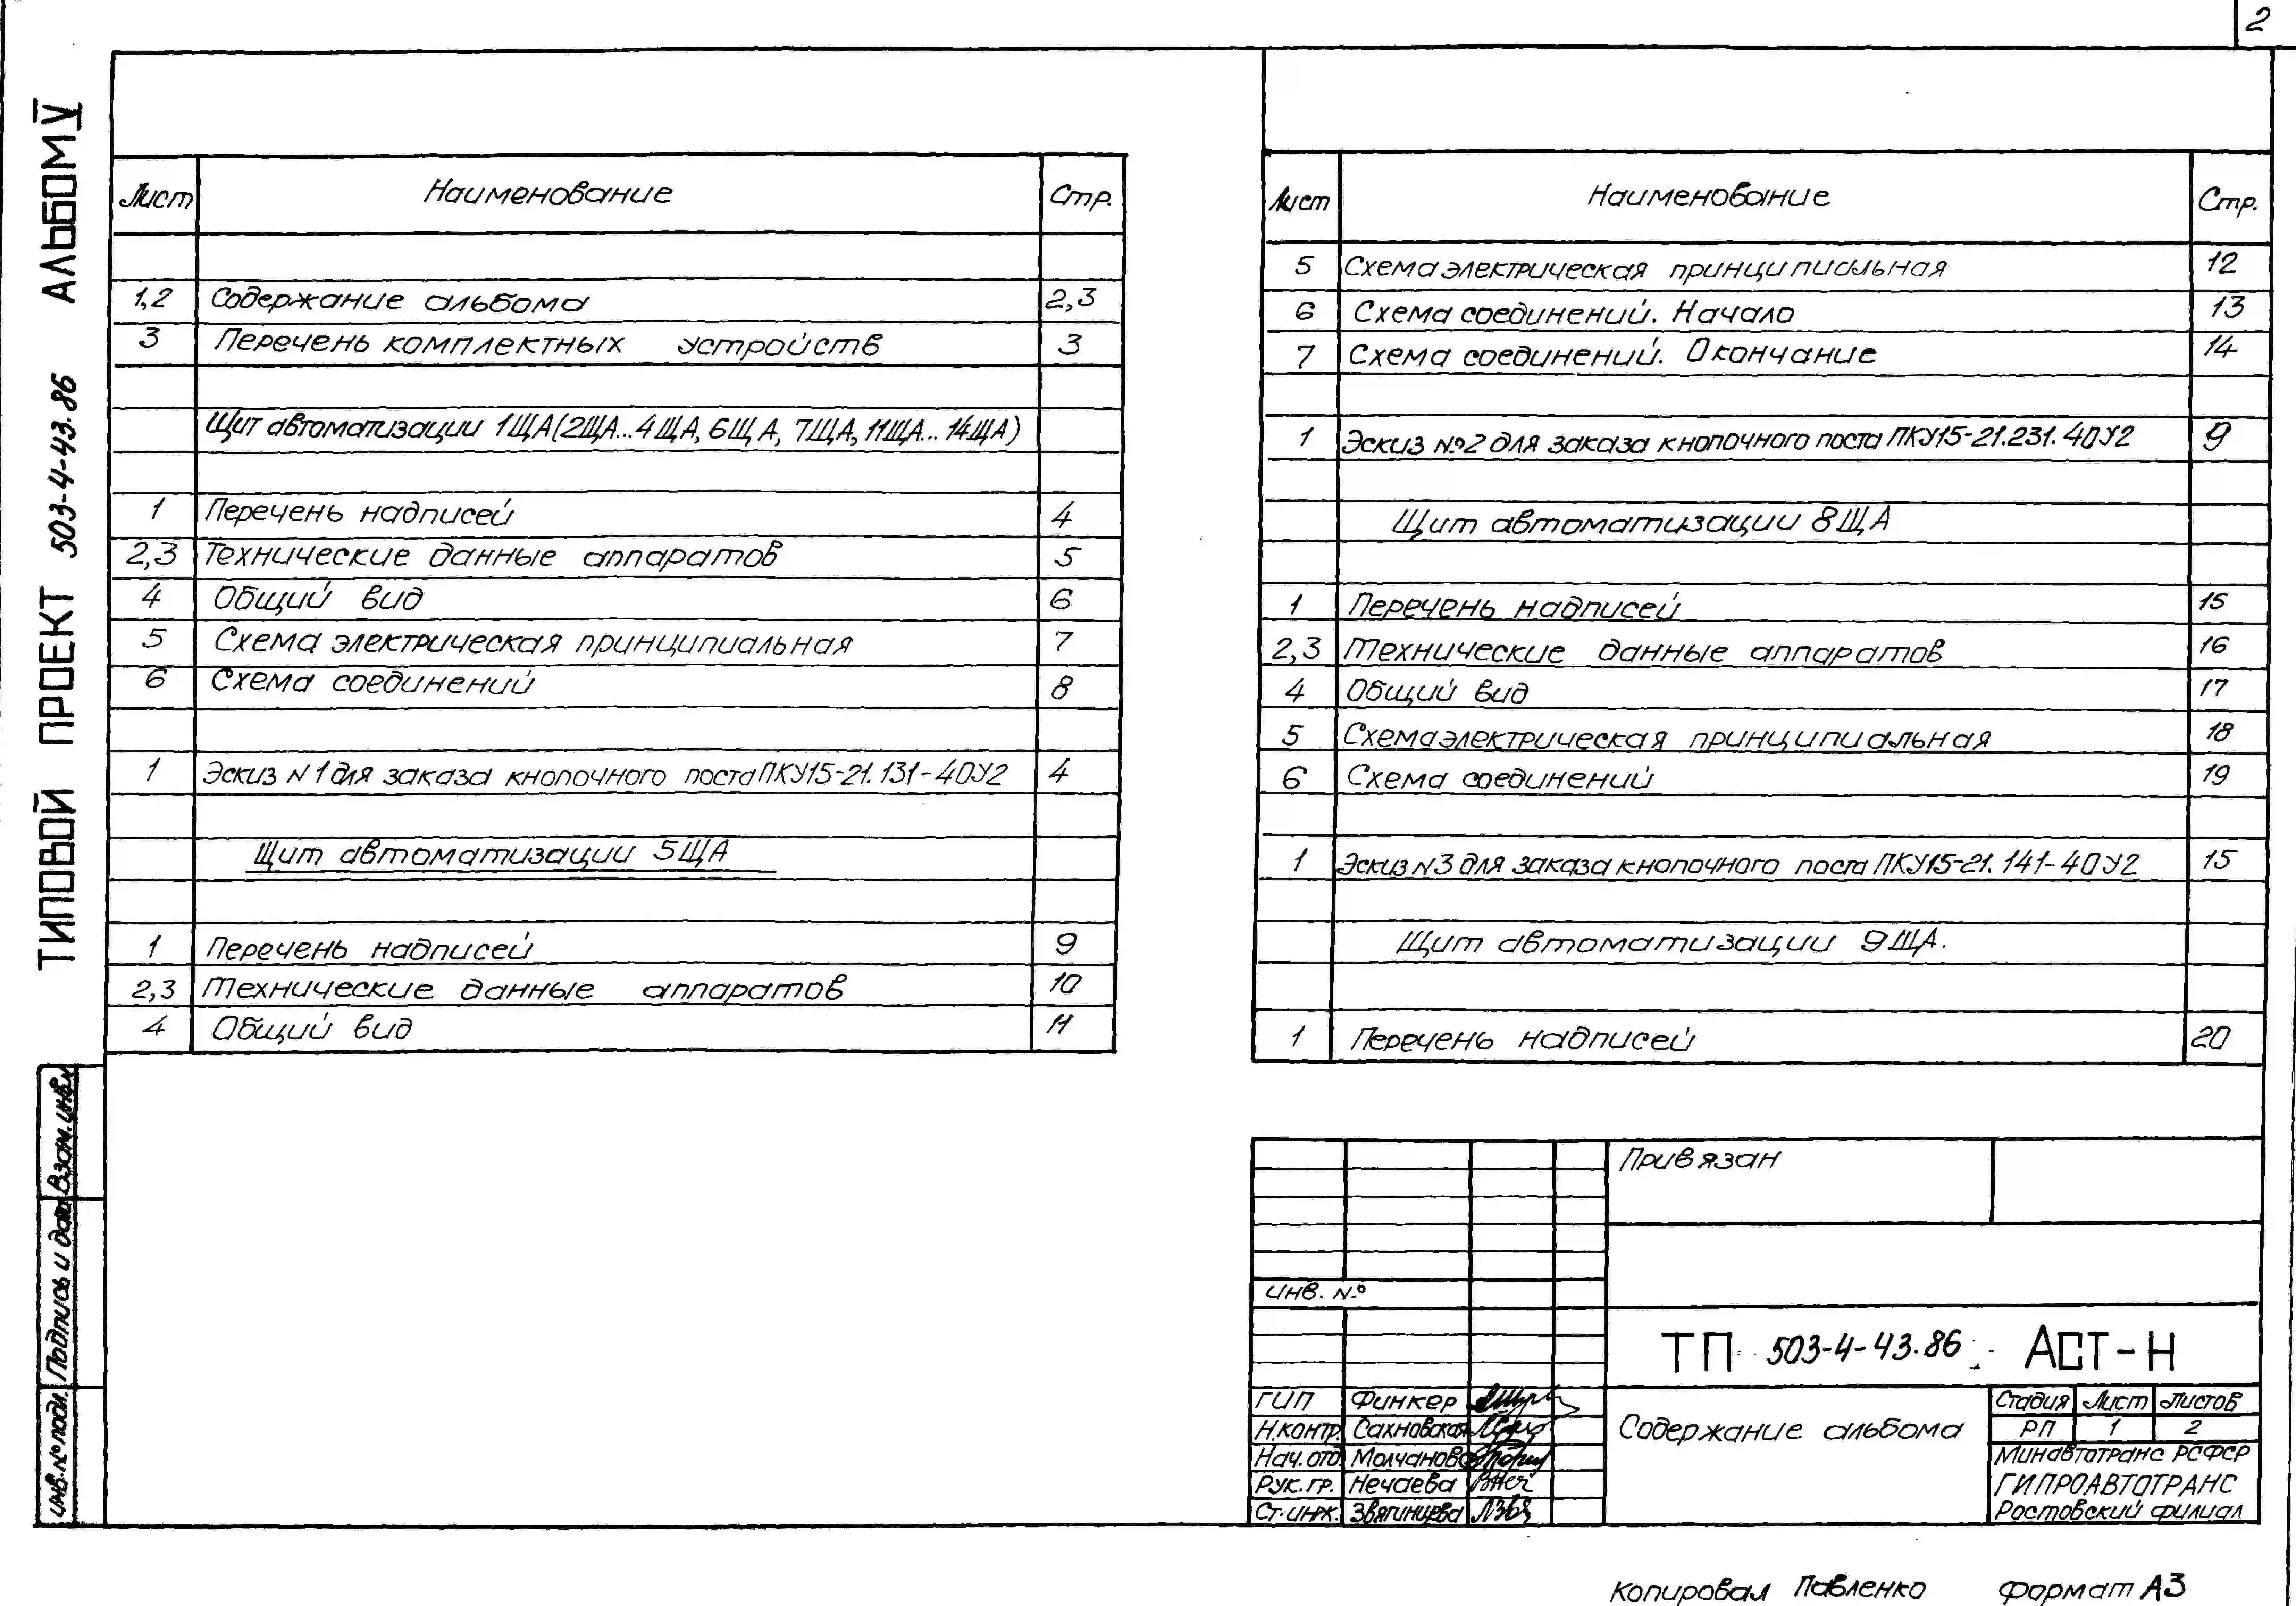 2
ТИПОВОЙ ПРОЕКТ 503-4-43.86 АЛЬБОМ V
Лист Наименование Стр.
1,2 Содержание альбома 2,3
3 Перечень комплектных устройств 3
Щит автоматизации 1ЩА(2ЩА...4ЩА, 6ЩА, 7ЩА, 11ЩА...14ЩА)
1 Перечень надписей 4
2,3 Технические данные аппаратов 5
4 Общий вид 6
5 Схема электрическая принципиальная 7
6 Схема соединений 8
1 Эскиз N1 для заказа кнопочного поста ПКУ15-21.131-40У2 4
Щит автоматизации 5ЩА
1 Перечень надписей 9
2,3 Технические данные аппаратов 10
4 Общий вид 11
Лист Наименование Стр.
5 Схема электрическая принципиальная 12
6 Схема соединений. Начало 13
7 Схема соединений. Окончание 14
1 Эскиз №2 для заказа кнопочного поста ПКУ15-21.231.40У2 9
Щит автоматизации 8ЩА
1 Перечень надписей 15
2,3 Технические данные аппаратов 16
4 Общий вид 17
5 Схема электрическая принципиальная 18
6 Схема соединений 19
1 Эскиз N3 для заказа кнопочного поста ПКУ15-21.141-40У2 15
Щит автоматизации 9ЩА.
1 Перечень надписей 20
Взам. инв. N
Подпись и дата
Инв. № подл.
Привязан
Инв. №
ТП 503-4-43.86 АСТ-Н
ГИП Финкер
Н.контр. Сахновская
Нач.отд. Молчанов
Рук.гр. Нечаева
Ст.инж. Звягинцева
Содержание альбома
Стадия Лист Листов
РП 1 2
Минавтотранс РСФСР
ГИПРОАВТОТРАНС
Ростовский филиал
Копировал Павленко Формат А3